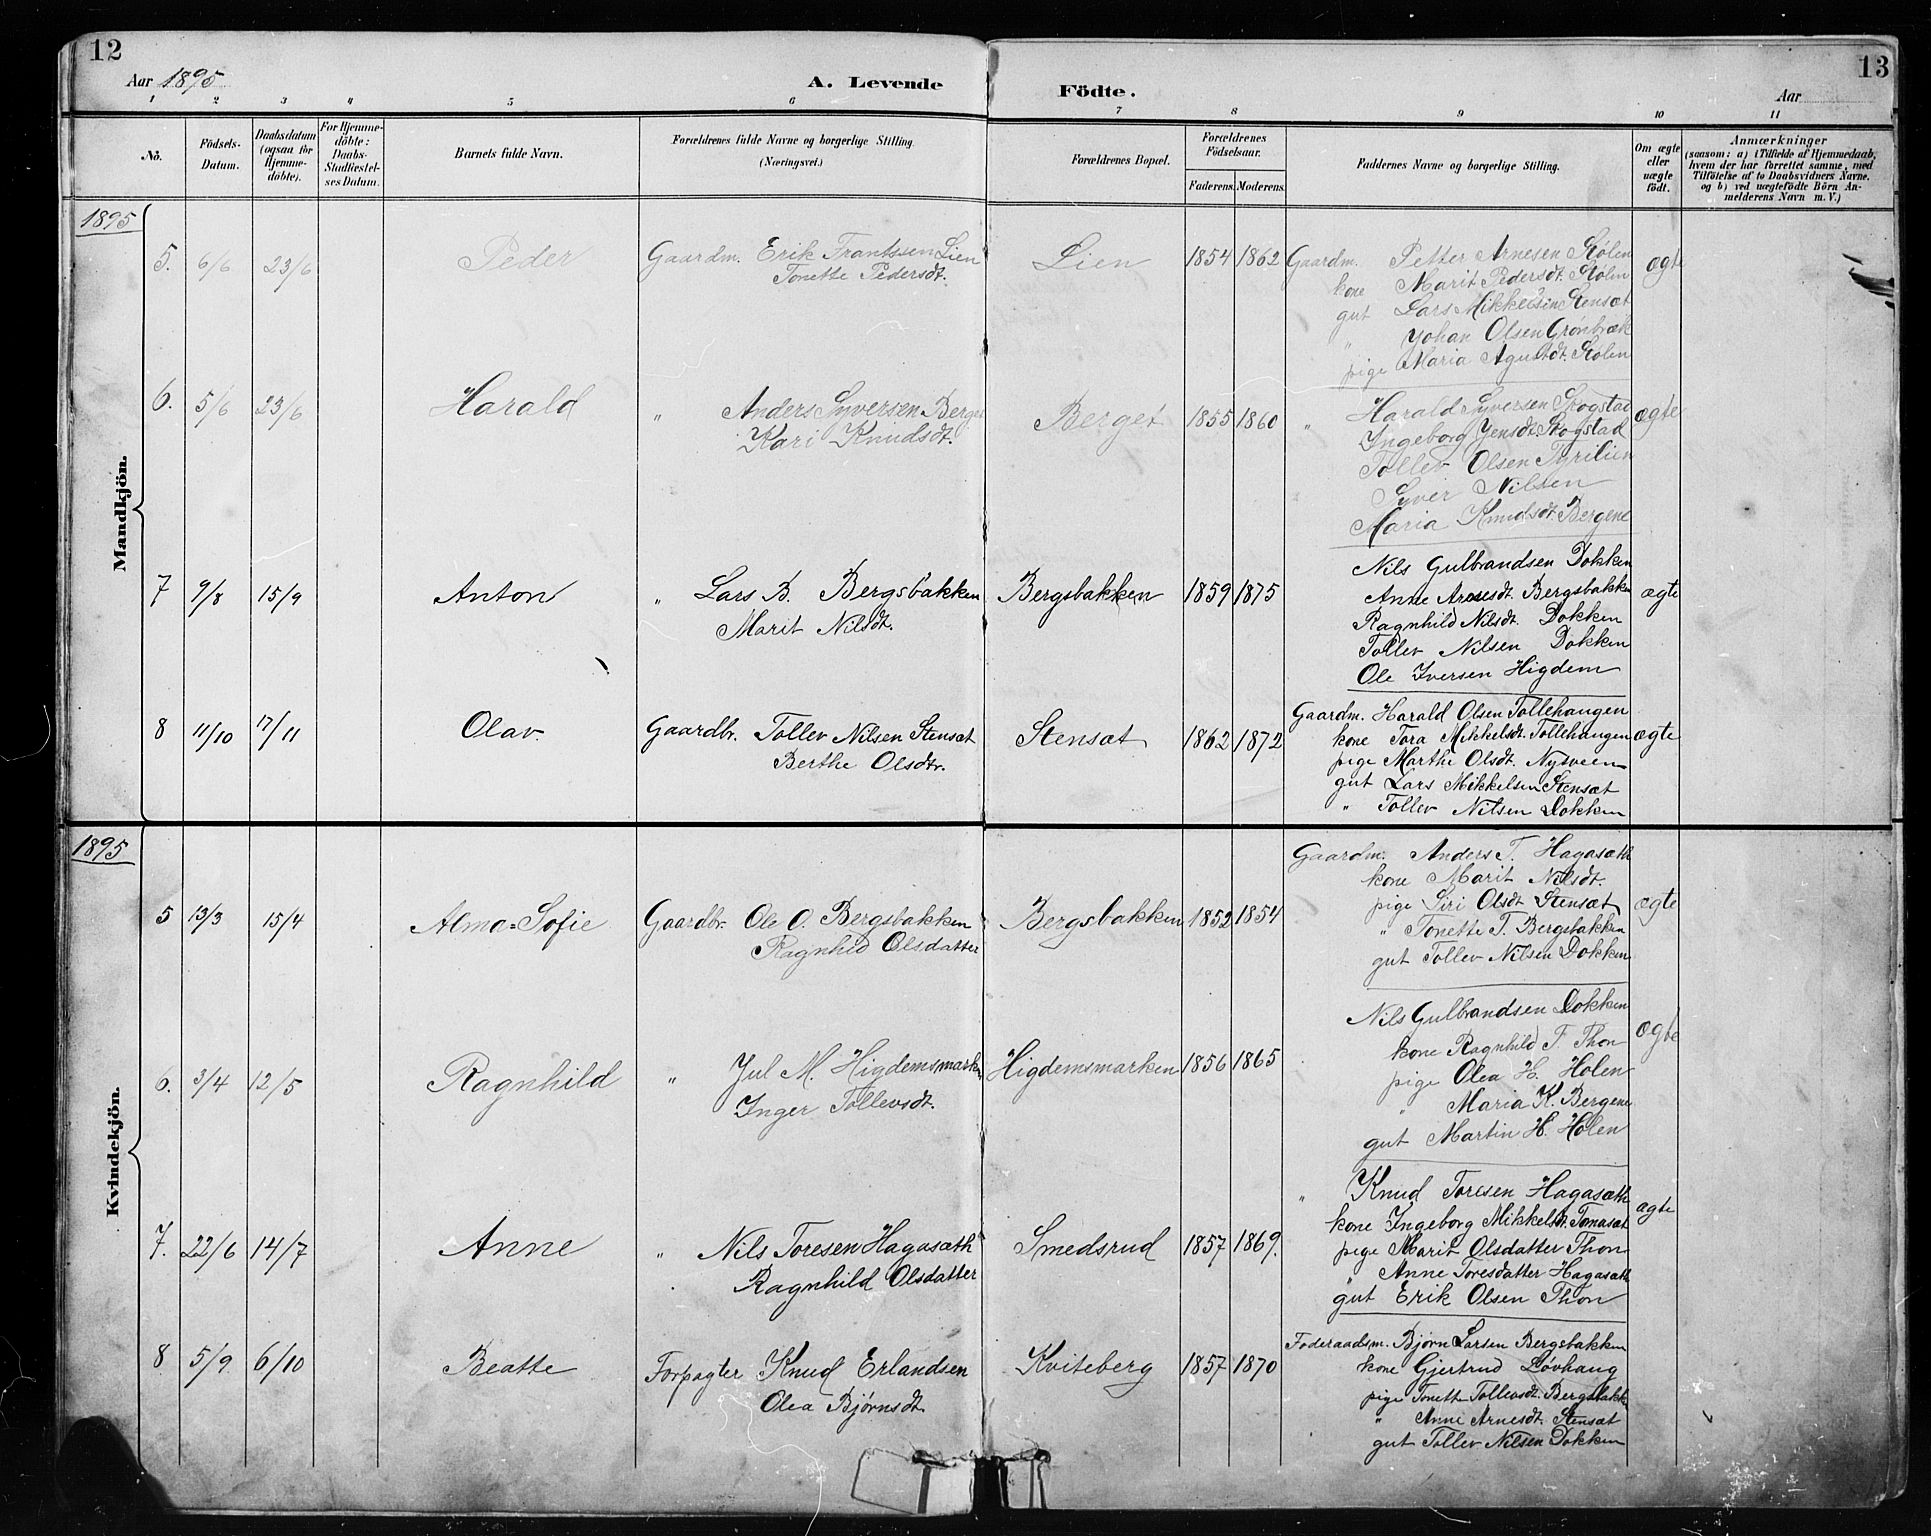 12
13
Aar 1895
A. Levende
Födte.
Aar
1 2 3 4 5 6 7 8 9 10 11
No.
Födsels-
Datum.
Daabsdatum
(ogsaa for
Hjemme-
döbte).
For Hjemme-
döbte:
Daabs-
Stadfæstel-
ses Datum.
Barnets fulde Navn.
Forældrenes fulde Navne og borgerlige Stilling.
(Næringsvei.)
Forældrenes Bopæl.
Forældrenes
Födselsaar.
Faderens. Moderens.
Faddernes Navne og borgerlige Stilling.
Om ægte
eller
uægte
födt.
Anmærkninger
(saasom: a) i Tilfælde af Hjemmedaab,
hvem der har forrettet samme, med
Tilföielse af to Daabsvidners Navne,
og b) ved uægtefödte Börn An-
melderens Navn m. V.)
Mandkjön.
1895
5. 6/6 23/6 Peder Gaardm. Erik Frantssen Lien
Tonette Pedersdt.
Lien 1854 1862
Gaardm. Petter Arnesen Stølen
kone Marit Pedersdt. Stølen
gut Lars Mikkelsen Stensæt
" Johan Olsen Grønbræk
pige Maria Agustdt. Stølen
ægte
6. 5/6 23/6 Harald " Anders Syversen Berget
Kari Knudsdt.
Berget 1855 1860
" Harald Syversen Skogstad
Ingeborg Jensdt. Skogstad
Tollev Olsen Tyrilien
Syver Nilsen
Maria Knudsdt. Bergene
ægte
7 9/8 15/9 Anton " Lars B. Bergsbakken
Marit Nilsdt.
Bergsbakken 1859 1875
Nils Gulbrandsen Dokken
Anne Arnesdt. Bergsbakken
Ragnhild Nilsdt. Dokken
Tollev Nilsen Dokken
Ole Iversen Higdem
ægte
8 11/10 17/11 Olav. Gaardbr. Tollev Nilsen Stensæt
Berthe Olsdtr.
Stensæt 1862 1872
Gaardm. Harald Olsen Tollehaugen
kone Tora Mikkelsdt. Tollehaugen
pige Marthe Olsdt. Nysveen
gut Lars Mikkelsen Stensæt
" Tollev Nilsen Dokken
ægte
Kvindekjön.
1895
5 13/3 15/4 Alma=Sofie Gaardbr. Ole O. Bergsbakken
Ragnhid Olsdatter
Bergsbakken 1852 1854
Gaardm. Anders T. Hagasæth
kone Marit Nilsdt.
pige Siri Olsdt Stensæt
" Tonette T. Bergsbakken
gut Tollev Nilsen Dokken
ægte
6. 3/4 12/5 Ragnhild " Jul M. Higdemsmarken
Inger Tollevsdt.
Higdemsmarken 1856 1865
Nils Gulbrandsen Dokken
kone Ragnhild T. Thon
pige Olea H. Holen
" Maria K. Bergene
gut Martin H. Holen
ægte
7. 22/6 14/7 Anne " Nils Toresen Hagasæth
Ragnhild Olsdatter
Smedsrud 1857 1869.
" Knud Toresen Hagasæth
kone Ingeborg Mikkelsdt. Tomasæt
pige Marit Olsdatter Thon
" Anne Toresdatter Hagasæth
gut Erik Olsen Thon
ægte
8 5/9. 6/10 Beatte Forpagter Knud Erlandsen
Olea Bjørnsdt.
Kviteberg 1857 1870
Føderaadsm. Bjørn Larsen Bergsbakken
kone Gjertrud Løvhaug
pige Tonette Tollevsdt. Bergsbakk
" Anne Arnesdt. Stensæt
gut Tollev Nilsen Dokken